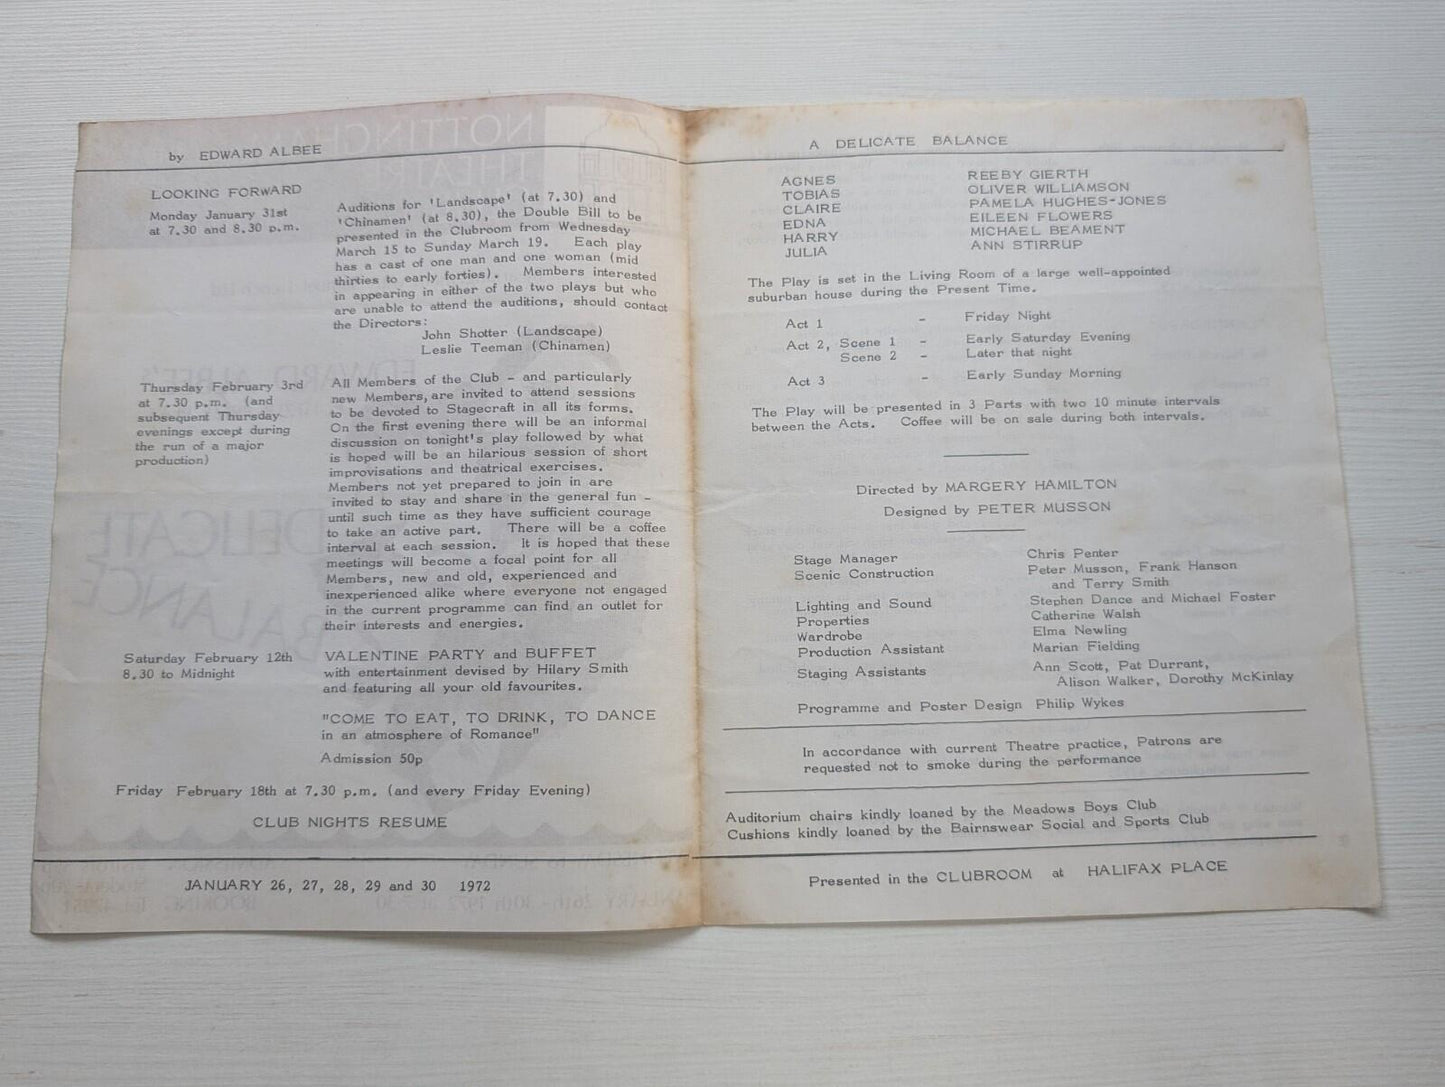 by EDWARD ALBEE
LOOKING FORWARD
Monday January 31st
at 7.30 and 8.30 p.m.
Auditions for 'Landscape' (at 7.30) and
'Chinamen' (at 8.30), the Double Bill to be
presented in the Clubroom from Wednesday
March 15 to Sunday March 19. Each play
has a cast of one man and one woman (mid
thirties to early forties). Members interested
in appearing in either of the two plays but who
are unable to attend the auditions, should contact
the Directors:
John Shotter (Landscape)
Leslie Teeman (Chinamen)
Thursday February 3rd
at 7.30 p.m. (and
subsequent Thursday
evenings except during
the run of a major
production)
All Members of the Club - and particularly
new Members, are invited to attend sessions
to be devoted to Stagecraft in all its forms.
On the first evening there will be an informal
discussion on tonight's play followed by what
is hoped will be an hilarious session of short
improvisations and theatrical exercises.
Members not yet prepared to join in are
invited to stay and share in the general fun -
until such time as they have sufficient courage
to take an active part. There will be a coffee
interval at each session. It is hoped that these
meetings will become a focal point for all
Members, new and old, experienced and
inexperienced alike where everyone not engaged
in the current programme can find an outlet for
their interests and energies.
Saturday February 12th
8.30 to Midnight
VALENTINE PARTY and BUFFET
with entertainment devised by Hilary Smith
and featuring all your old favourites.
"COME TO EAT, TO DRINK, TO DANCE
in an atmosphere of Romance"
Admission 50p
Friday February 18th at 7.30 p.m. (and every Friday Evening)
CLUB NIGHTS RESUME
JANUARY 26, 27, 28, 29 and 30 1972
A DELICATE BALANCE
AGNES REEBY GIERTH
TOBIAS OLIVER WILLIAMSON
CLAIRE PAMELA HUGHES-JONES
EDNA EILEEN FLOWERS
HARRY MICHAEL BEAMENT
JULIA ANN STIRRUP
The Play is set in the Living Room of a large well-appointed
suburban house during the Present Time.
Act 1 - Friday Night
Act 2, Scene 1 - Early Saturday Evening
Scene 2 - Later that night
Act 3 - Early Sunday Morning
The Play will be presented in 3 Parts with two 10 minute intervals
between the Acts. Coffee will be on sale during both intervals.
Directed by MARGERY HAMILTON
Designed by PETER MUSSON
Stage Manager Chris Penter
Scenic Construction Peter Musson, Frank Hanson
and Terry Smith
Lighting and Sound Stephen Dance and Michael Foster
Properties Catherine Walsh
Wardrobe Elma Newling
Production Assistant Marian Fielding
Staging Assistants Ann Scott, Pat Durrant,
Alison Walker, Dorothy McKinlay
Programme and Poster Design Philip Wykes
In accordance with current Theatre practice, Patrons are
requested not to smoke during the performance
Auditorium chairs kindly loaned by the Meadows Boys Club
Cushions kindly loaned by the Bairnswear Social and Sports Club
Presented in the CLUBROOM at HALIFAX PLACE